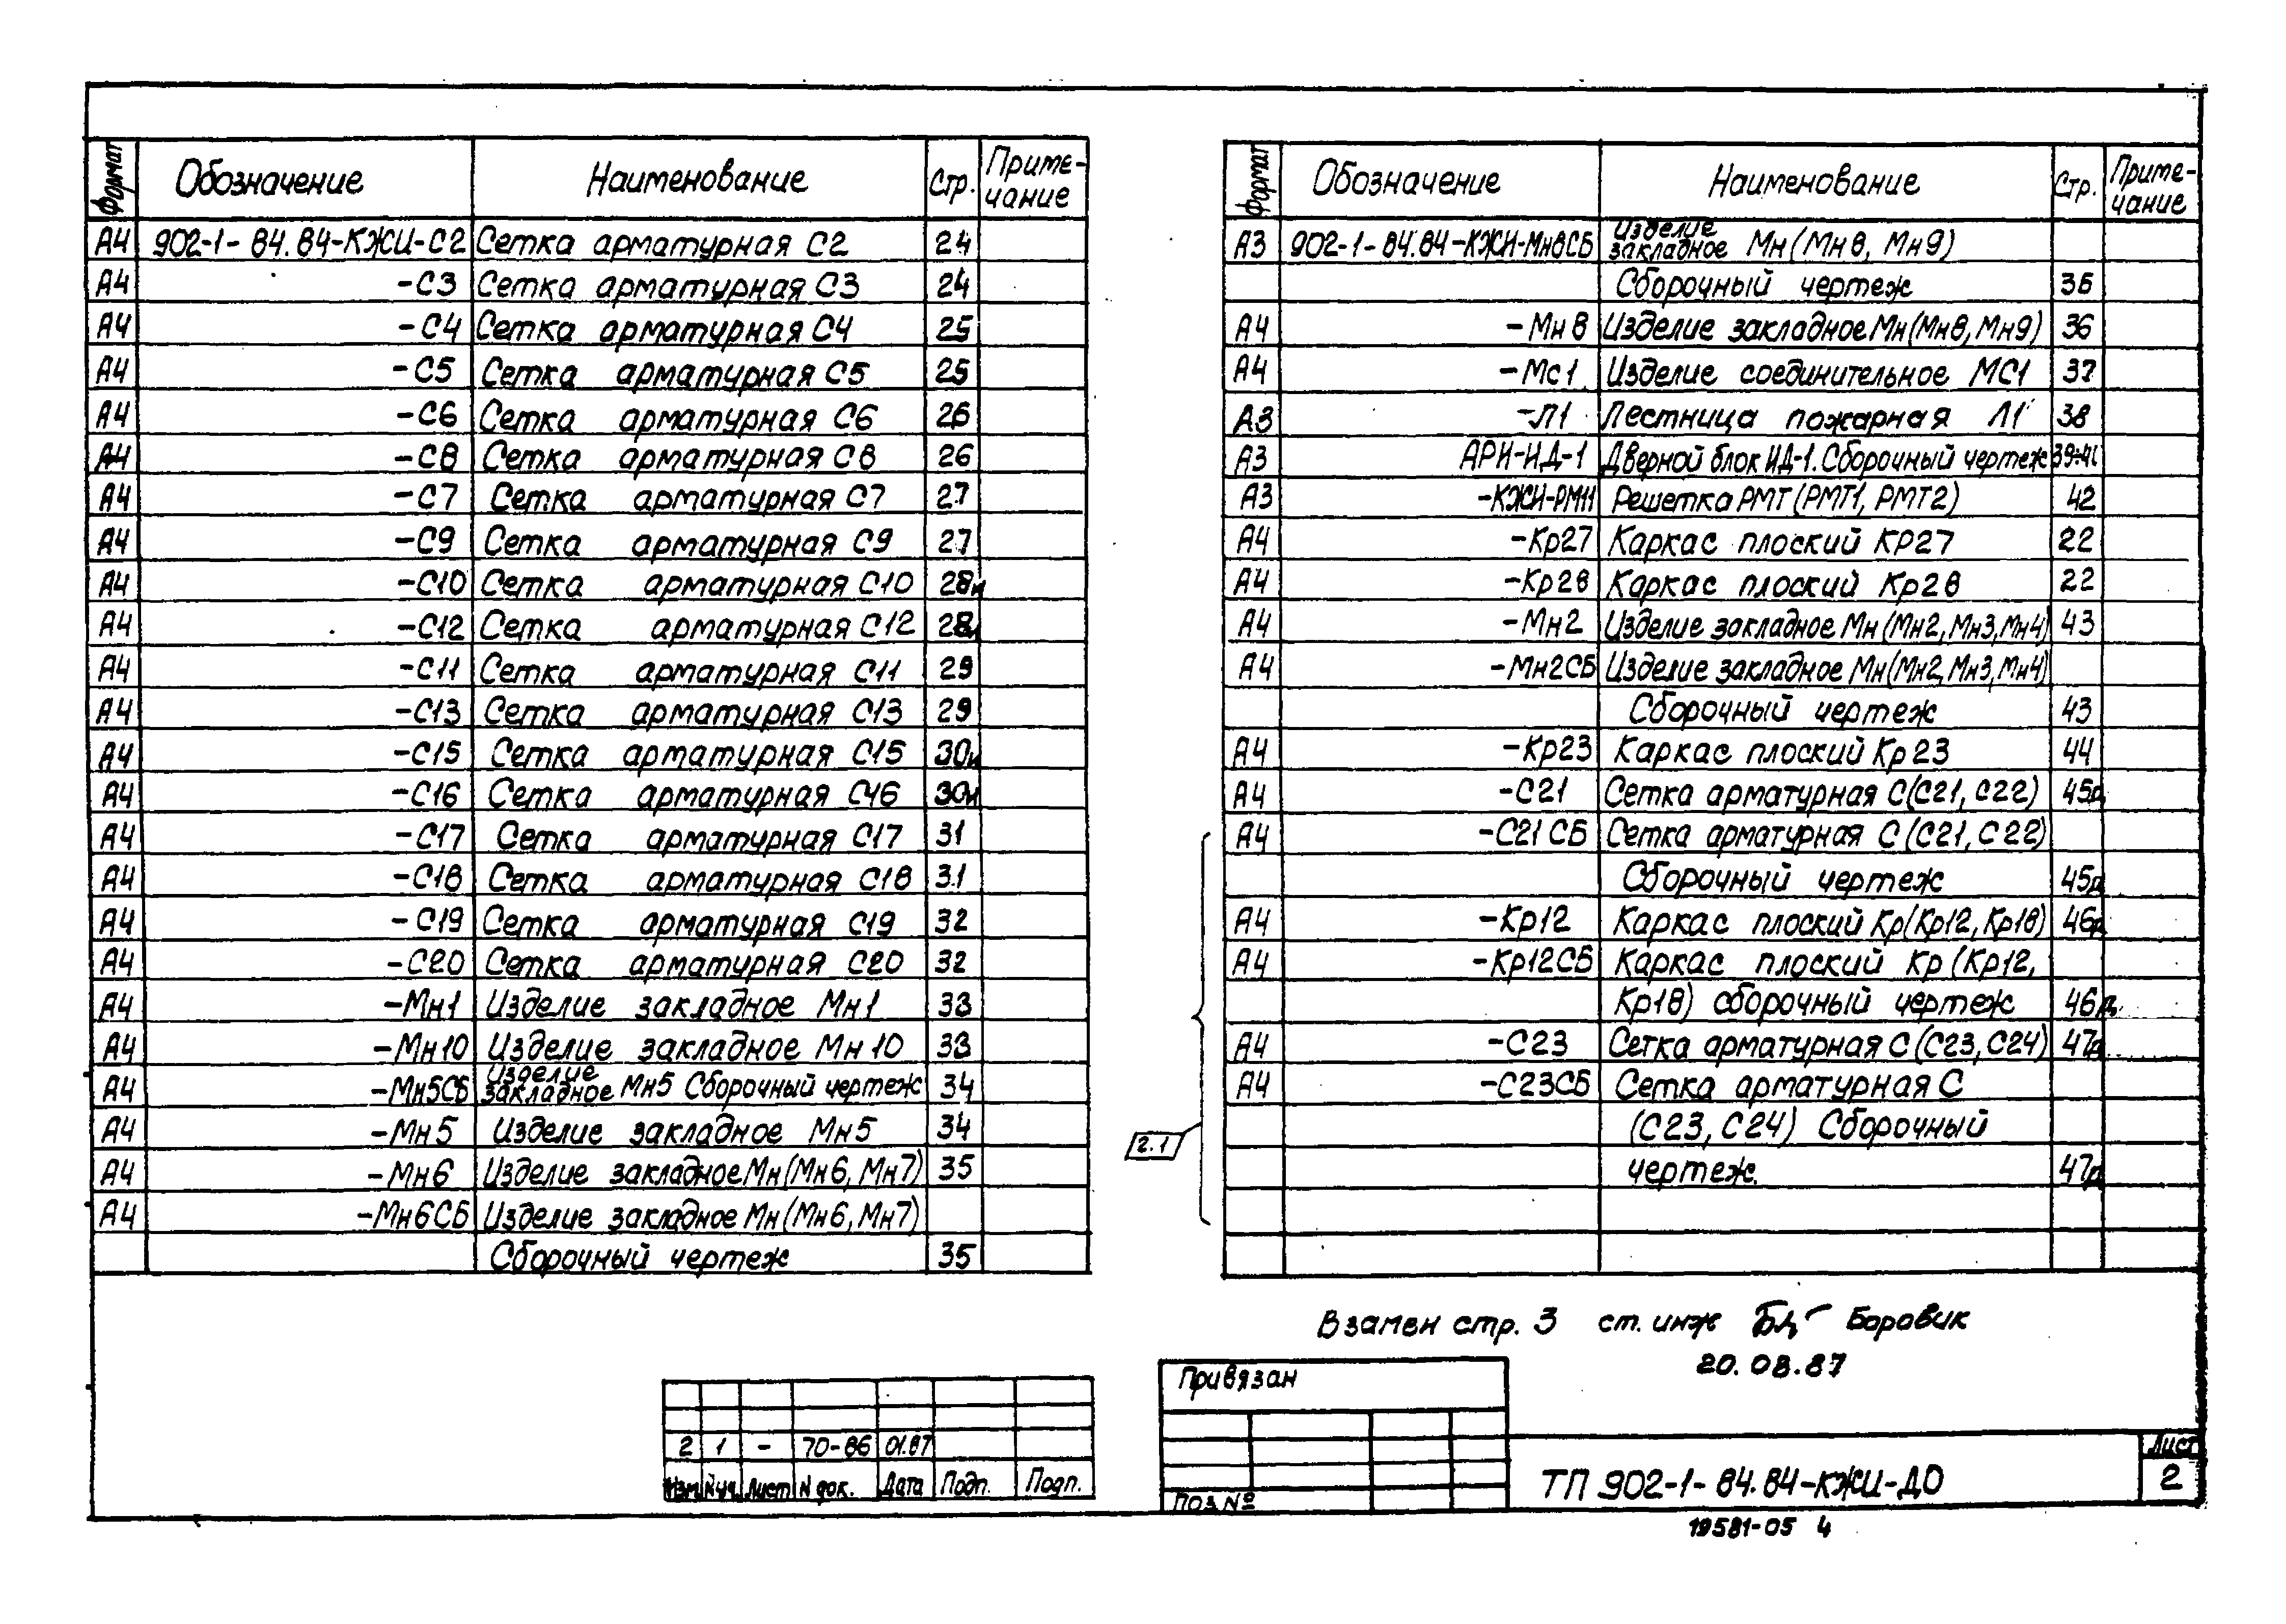 Формат Обозначение Наименование Стр. Приме-
чание
А4 902-1-84.84-КЖИ-С2 Сетка арматурная С2 24
А4 -С3 Сетка арматурная С3 24
А4 -С4 Сетка арматурная С4 25
А4 -С5 Сетка арматурная С5 25
А4 -С6 Сетка арматурная С6 26
А4 -С8 Сетка арматурная С8 26
А4 -С7 Сетка арматурная С7 27
А4 -С9 Сетка арматурная С9 27
А4 -С10 Сетка арматурная С10 28и
А4 -С12 Сетка арматурная С12 28и
А4 -С11 Сетка арматурная С11 29
А4 -С13 Сетка арматурная С13 29
А4 -С15 Сетка арматурная С15 30и
А4 -С16 Сетка арматурная С16 30и
А4 -С17 Сетка арматурная С17 31
А4 -С18 Сетка арматурная С18 31
А4 -С19 Сетка арматурная С19 32
А4 -С20 Сетка арматурная С20 32
А4 -Мн1 Изделие закладное Мн1 33
А4 -Мн10 Изделие закладное Мн10 33
А4 -Мн5СБ Изделие закладное Мн5 Сборочный чертеж 34
А4 -Мн5 Изделие закладное Мн5 34
А4 -Мн6 Изделие закладное Мн(Мн6, Мн7) 35
А4 -Мн6СБ Изделие закладное Мн(Мн6, Мн7)
Сборочный чертеж 35
Формат Обозначение Наименование Стр. Приме-
чание
А3 902-1-84.84-КЖИ-Мн8СБ Изделие закладное Мн(Мн8, Мн9)
Сборочный чертеж 36
А4 -Мн8 Изделие закладное Мн(Мн8, Мн9) 36
А4 -Мс1 Изделие соединительное МС1 37
А3 -Л1 Лестница пожарная Л1 38
А3 АРИ-ИД-1 Дверной блок ИД-1. Сборочный чертеж 39-41
А3 -КЖИ-РМТ1 Решетка РМТ(РМТ1, РМТ2) 42
А4 -Кр27 Каркас плоский КР27 22
А4 -Кр28 Каркас плоский Кр28 22
А4 -Мн2 Изделие закладное Мн(Мн2, Мн3, Мн4) 43
А4 -Мн2СБ Изделие закладное Мн(Мн2, Мн3, Мн4)
Сборочный чертеж 43
А4 -Кр23 Каркас плоский Кр23 44
А4 -С21 Сетка арматурная С(С21, С22) 45д
А4 -С21СБ Сетка арматурная С(С21, С22)
Сборочный чертеж 45д
А4 -Кр12 Каркас плоский Кр(Кр12, Кр18) 46д
А4 -Кр12СБ Каркас плоский Кр(Кр12,
Кр18) сборочный чертеж 46д
А4 -С23 Сетка арматурная С(С23, С24) 47д
А4 -С23СБ Сетка арматурная С
(С23, С24) Сборочный
чертеж. 47д
2.1
Взамен стр. 3 ст. инж Боровик
20.08.87
2 1 - 70-86 01.87
Изм Nуч Лист N док. Дата Подп. Подп.
Привязан
ПОЗ.№
ТП 902-1-84.84-КЖИ-ДО
Лист
2
19581-05 4